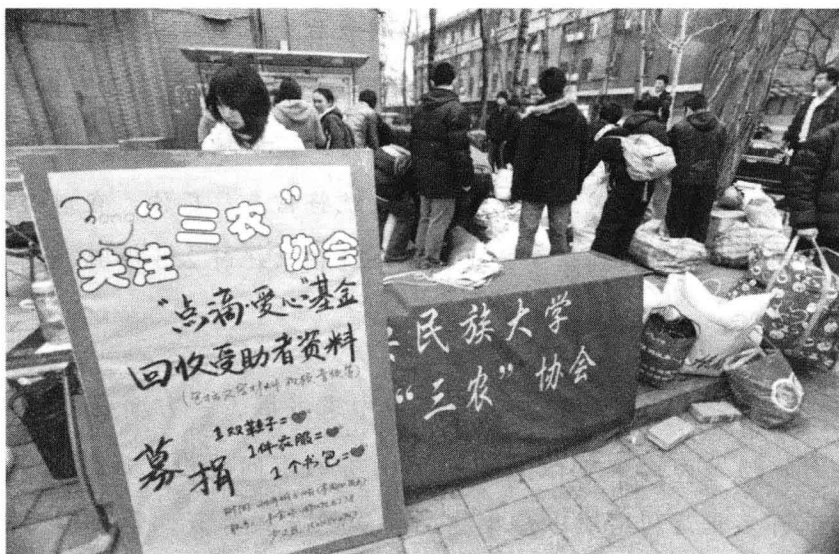 “三农”
关注 协会
“点滴·爱心”基金
回收受助者资料
募捐
1双鞋子=❤
1件衣服=❤
1个书包=❤
民族大学
“三农”协会